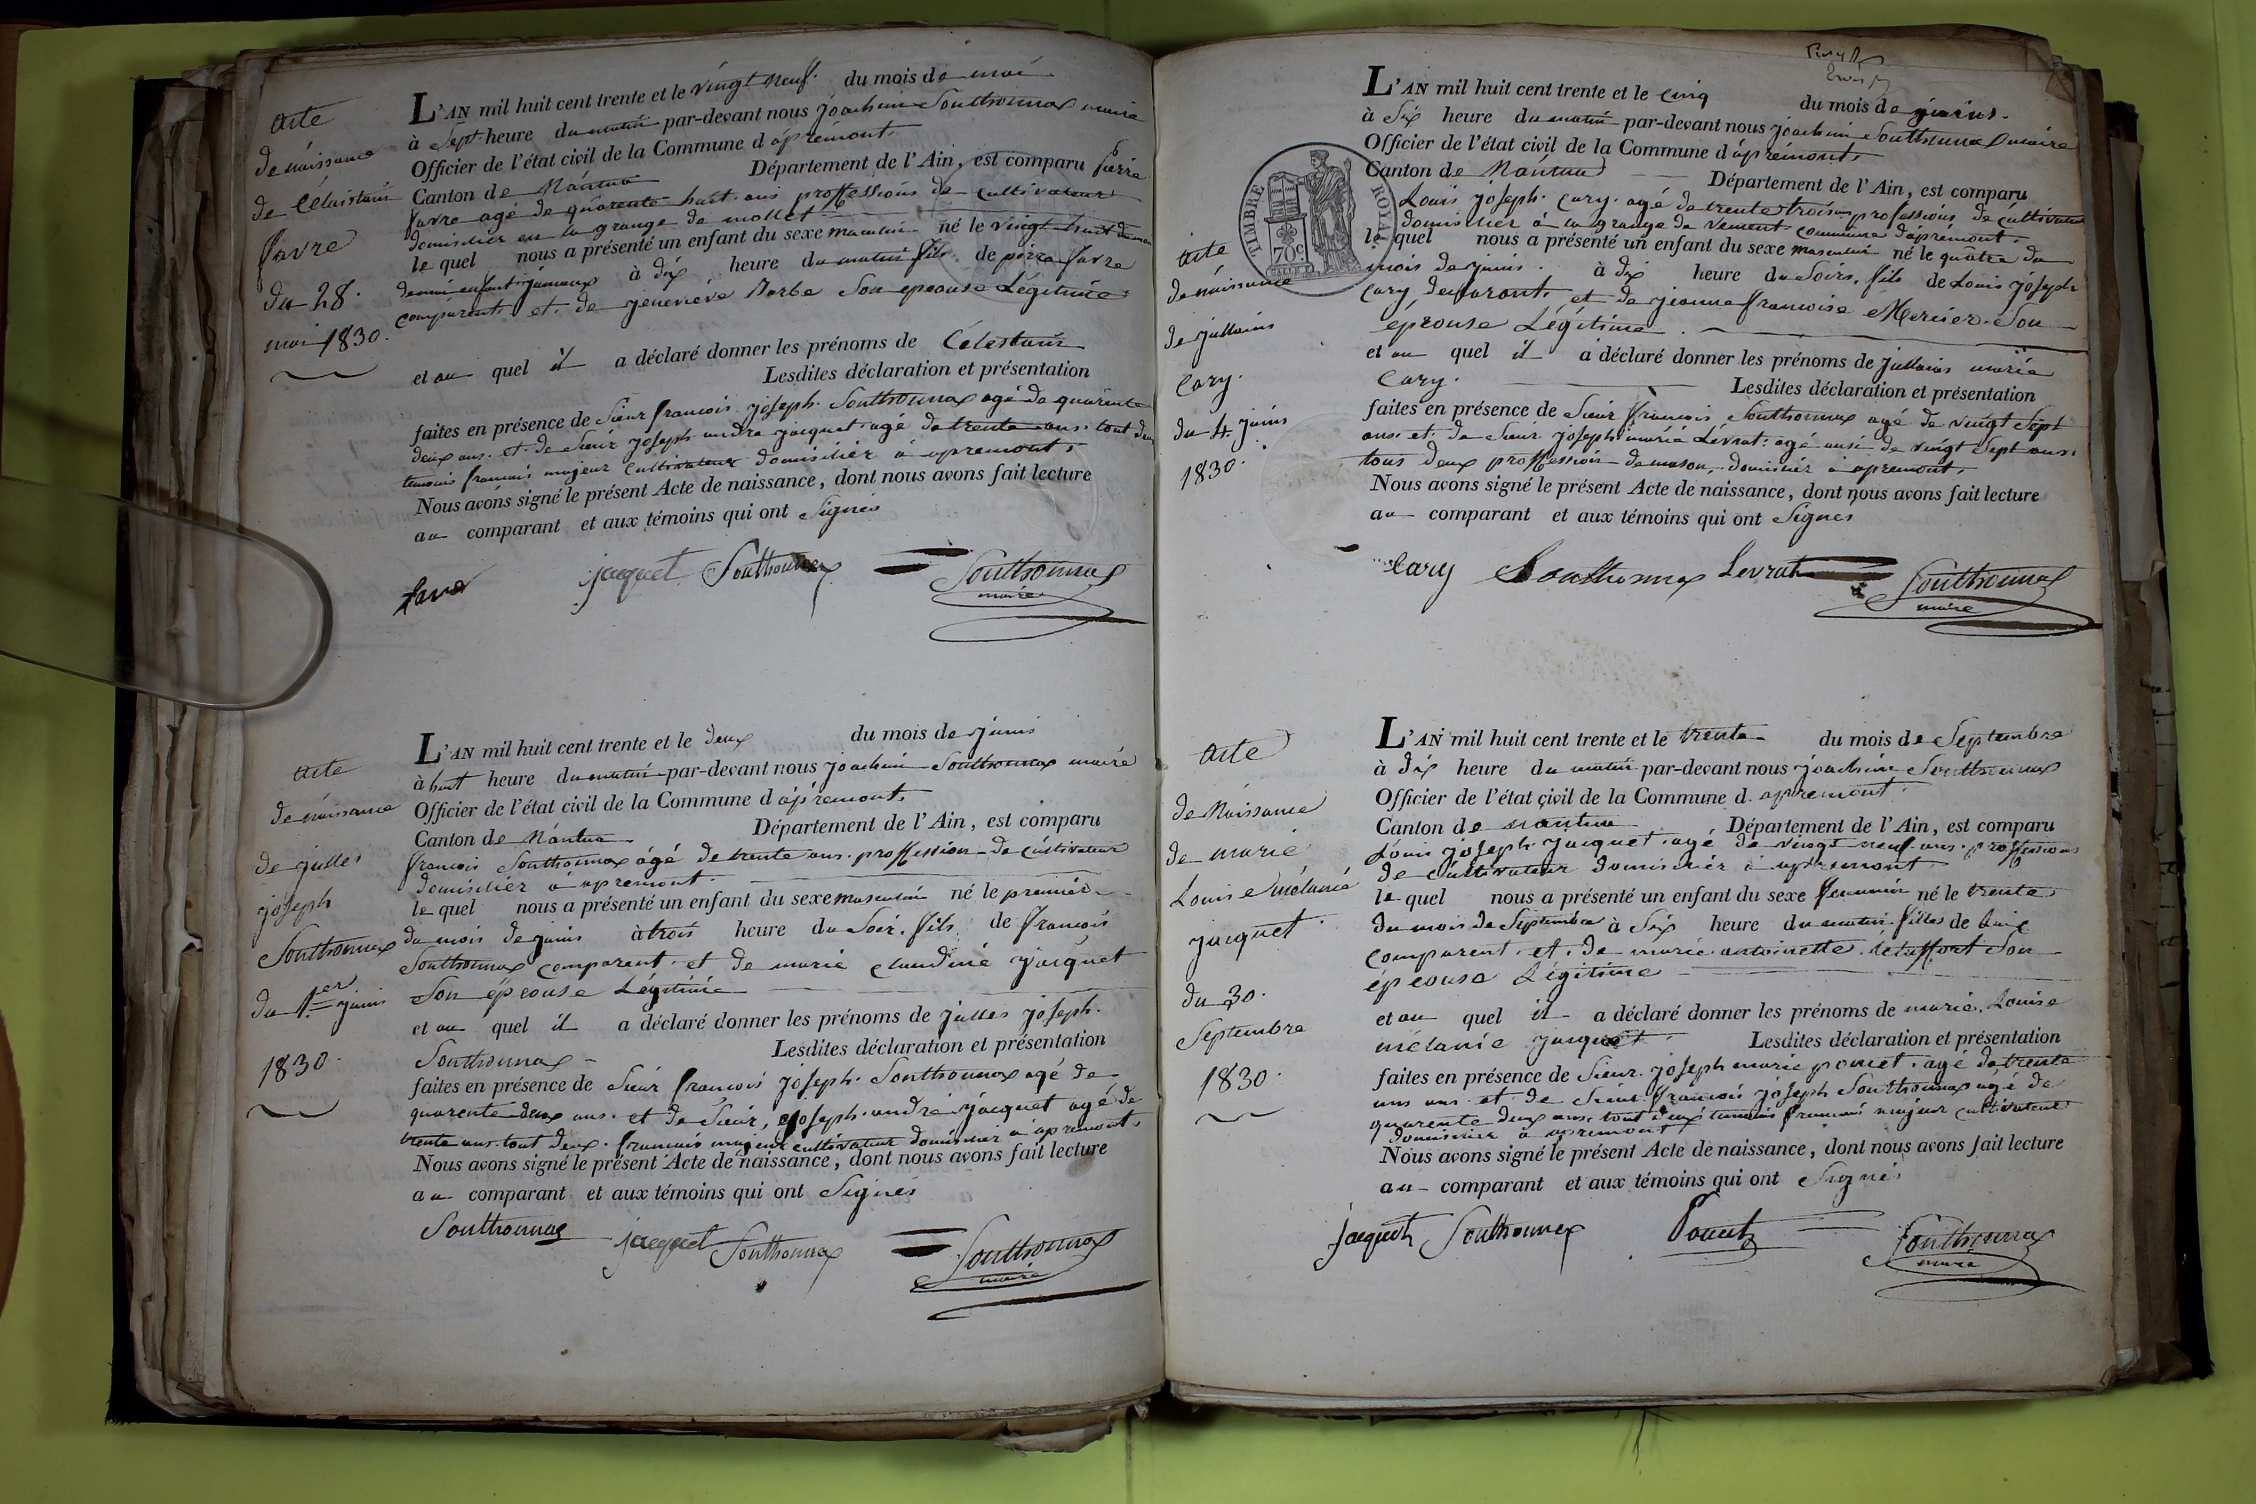 acte
de náissance
de Célestain
favre
du 28.
mai 1830.
L'AN mil huit cent trente et le vingt neuf. du mois de mai
à Sept heure du matin par-devant nous joachim Southonnax maire
Officier de l'état civil de la Commune d'apremont.
Canton de Nántua Département de l'Ain, est comparu pierre
favre agé de quarente huit ans proffessions de cultivateur
domicilier en la grange de mollet
le quel nous a présenté un enfant du sexe masculin né le vingt huit du mois
de mai enfant jumaux à dix heure du matin fils de pierre favre
comparent et de jeneviéve Barbe Son epeouse Légitime
et au quel il a déclaré donner les prénoms de Célestain
Lesdites déclaration et présentation
faites en présence de Sieur francois joseph Southonnax agé de quarente
deux ans et de Sieur joseph andre jacquet agé de trente ans tout deux
temoins francais majeur cultivateur domicilier a apremont.
Nous avons signé le présent Acte de naissance, dont nous avons fait lecture
au comparant et aux témoins qui ont Signés
favre jacquet Southonnax Southonnax
maire
acte
de náissance
de julles
joseph
Southonnax
du 1er juins
1830.
L'AN mil huit cent trente et le deux du mois de juins
à huit heure du matin par-devant nous joachim Southonnax maire
Officier de l'état civil de la Commune d'apremont.
Canton de Nántua Département de l'Ain, est comparu
francois Southonnax ágé de trente ans proffession de cultivateur
domicilier a apremont.
le quel nous a présenté un enfant du sexe masculin né le premier
du mois de juins à trois heure du Soir. fils de francois
Southonnax comparent et de marie claudine jacquet
Son épeouse Légitime
et au quel il a déclaré donner les prénoms de julles joseph.
Southonnax Lesdites déclaration et présentation
faites en présence de Sieur francois joseph Southonnax agé de
quarente deux ans. et de Sieur, joseph andre jacquet agé de
trente ans tout deux francais majeur cultivateur domicilier a apremont.
Nous avons signé le présent Acte de naissance, dont nous avons fait lecture
au comparant et aux témoins qui ont Signés
Southonnax jacquet Southonnax Southonnax
maire
TIMBRE ROYAL
70c
acte
de náissance
de jullains
Cary.
du 4 juins
1830.
L'AN mil huit cent trente et le cinq du mois de juins.
à Six heure du matin par-devant nous joachim Southonnax maire
Officier de l'état civil de la Commune d'apremont.
Canton de Nántua Département de l'Ain, est comparu
Louis joseph Cary agé de trente trois ans professions de cultivateur
domicilier a la grange de commune d'apremont.
le quel nous a présenté un enfant du sexe masculin né le quatre du
mois de juins. à dix heure du Soirs. fils de Louis joseph
Cary, et de jeanne francoise Mercier Son
épeouse Légitime
et au quel il a déclaré donner les prénoms de jullains marie
Cary. Lesdites déclaration et présentation
faites en présence de Sieur francois Southonnax agé de vingt Sept
ans et de Sieur joseph marie Levrat agé ausi de vingt Sept ans
tous deux proffession de mason domicilier a apremont.
Nous avons signé le présent Acte de naissance, dont nous avons fait lecture
au comparant et aux témoins qui ont Signes
Cary Southonnax Levrat Southonnax
maire
acte
de Naissance
de marie
Louise mélanie
jacquet.
du 30.
Septembre
1830.
L'AN mil huit cent trente et le trente du mois de Septembre
à dix heure du matin par-devant nous joachim Southonnax
Officier de l'état civil de la Commune d. apremont.
Canton de nantua Département de l'Ain, est comparu
Louis joseph jacquet agé de vingt neuf ans. proffessions
de cultivateur domicilier a apremont
le quel nous a présenté un enfant du sexe feminin né le trente
du mois de Septembre à Six heure du matin filles de Louis
comparent. et de marie antoinette Son
épeouse Légitime
et au quel il a déclaré donner les prénoms de marie Louise
mélanie jacquet. Lesdites déclaration et présentation
faites en présence de Sieur joseph marie poncet agé de trente
uns ans et de Sieur francois joseph Southonnax agé de
quarente deux ans tout deux temoins francais majeur cultivateur
domicilier a apremont
Nous avons signé le présent Acte de naissance, dont nous avons fait lecture
au comparant et aux témoins qui ont Signés
jacquet Southonnax Poncet Southonnax
maire